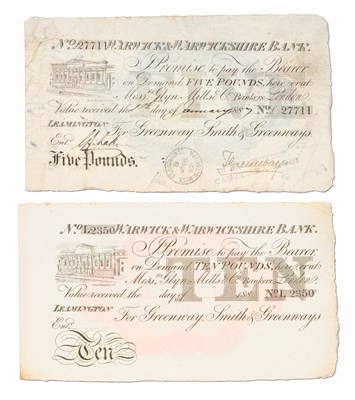 No 27711 WARWICK & WARWICKSHIRE BANK.
I Promise to pay the Bearer
on Demand FIVE POUNDS, here or at
Messrs Glyn, Mills & Co Bankers London
Value received the day of January 1887 No 27711
LEAMINGTON For Greenway, Smith & Greenways
Entd
Five Pounds.
No L2350 WARWICK & WARWICKSHIRE BANK.
I Promise to pay the Bearer
on Demand TEN POUNDS, here or at
Messrs Glyn, Mills & Co Bankers London
TEN
Value received the day of 188 No L 2350
LEAMINGTON For Greenway, Smith & Greenways
Entd
Ten